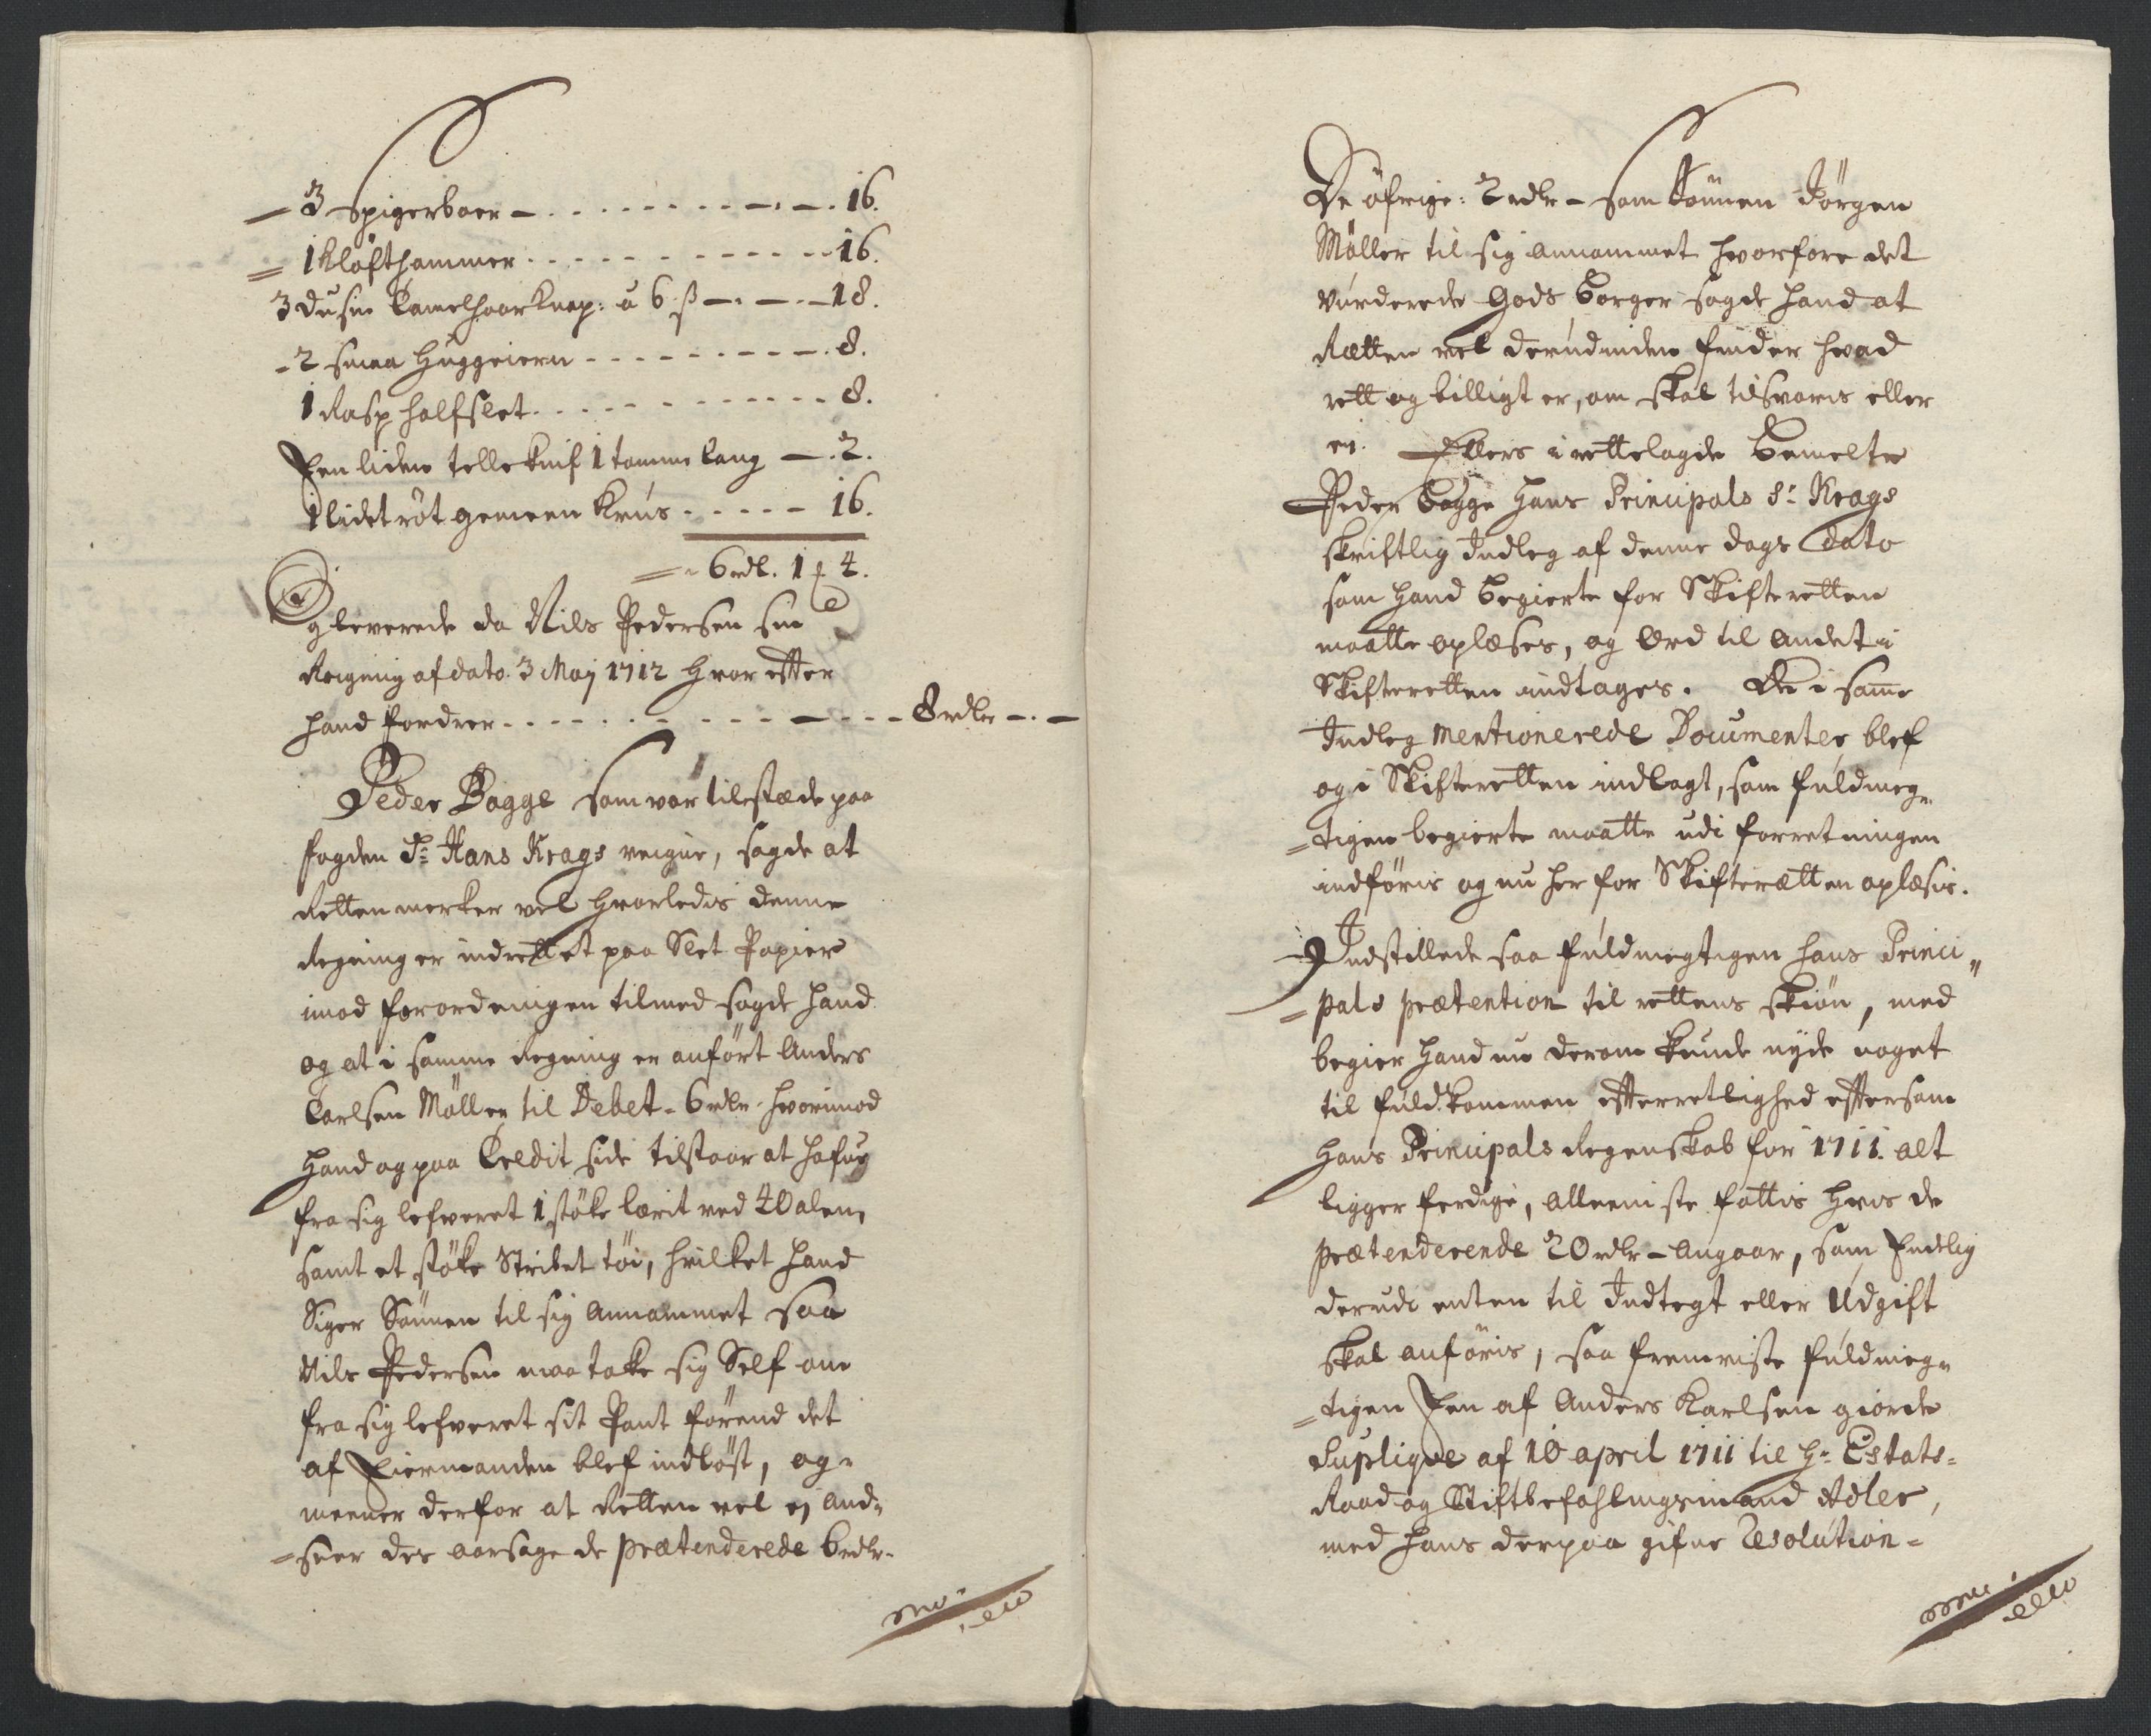 3 Spigerboer - . . . . . . . - . - . 16.
1 Kløfthammer . . . . . . . . . 16.
3 dusin Camelhaar Knap: a 6 ß - . - . - 18.
2 smaa Huggeiern - - - - - - - - - . 8.
1 Rasp halfslet . . . . . . . . . . 8.
Een liden tolleknif 1 tomme lang - . 2.
1 lidet röt gemeen Krus . . . . - 16.
6 rdl. 1 ƒ 4.
Og leverede da Nils Pedersen sin
Reigning af dato. 3 Maj 1712 hvor effter
hand fordrer . . . . . . . . - . . . 8 rdlr - . -
Peder Bagge som var tilstæde paa
fogden Sr: Hans Krags veigne, sagde at
Retten merker vel hvorledis denne
Regning er indrettet paa Slet Papier
imod forordningen tilmed sagde hand
og at i samme Regning er anført Anders
Carlsen Møller til Debet - 6 rdlr - hvorimod
hand og paa Credit side tilstaar at hafve
fra sig lefveret 1 støke lærit ved 40 alen,
samt et støke Stribet töi, hvilket hand
Siger Sönnen til sig annammet saa
Nils Pedersen maa take sig Self om
fra sig lefveret sit Pant förend det
af Eiermanden blef indløst, og
meener derfor at Retten vel ej and-
seer des aarsage de prætenderede 6 rdlr -
De öfrige: 2 rdlr - som Sönnen Jörgen
Möller til sig annammet hvorfore det
vurderede Gods borger sagde hand at
Retten vel derudinden finder hvad
rett og billigt er, om skal tilsvaris eller
ei. Ellers i rettelagde bemelte
Peder Bagge hans Principals Sr: Krags
skriftlig Indleg af denne dags dato
som hand begierte for Skifteretten
maatte oplæses, og Ord til andet i
Skifteretten indtages. De i samme
Indleg mentionerede Documenter blef
og i Skifteretten indlagt, som fuldmeg-
tigen begierte maatte udi forretningen
indföris og nu her for Skifterætten oplæsis.
Indstillede saa fuldmegtigen hans Princi-
pals prætention til rettens skiön, med
begier hand nu derom kunde nyde noget
til fuldkommen effterretlighed efftersom
hans Principals Regenskab for 1711. alt
ligger ferdige, alleeniste fattis hvis de
prætenderende 20 rdlr - angaar, som Endlig
derudi enten til Indtegt eller Udgift
skal anföris, saa fremviste fuldmeg-
tigen Een af Anders Karlsen giorde
Supliqve af 10 april 1711 til Hr: Estats-
Raad og Stiftbefahlingsmand Adler,
med hans derpaa gifne Resolution -